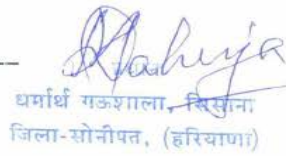 धर्मार्थ गऊशाला, सिसाना
जिला-सोनीपत, (हरियाणा)